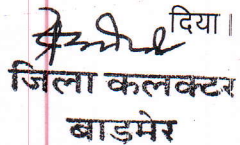 दिया।
जिला कलक्टर
बाड़मेर